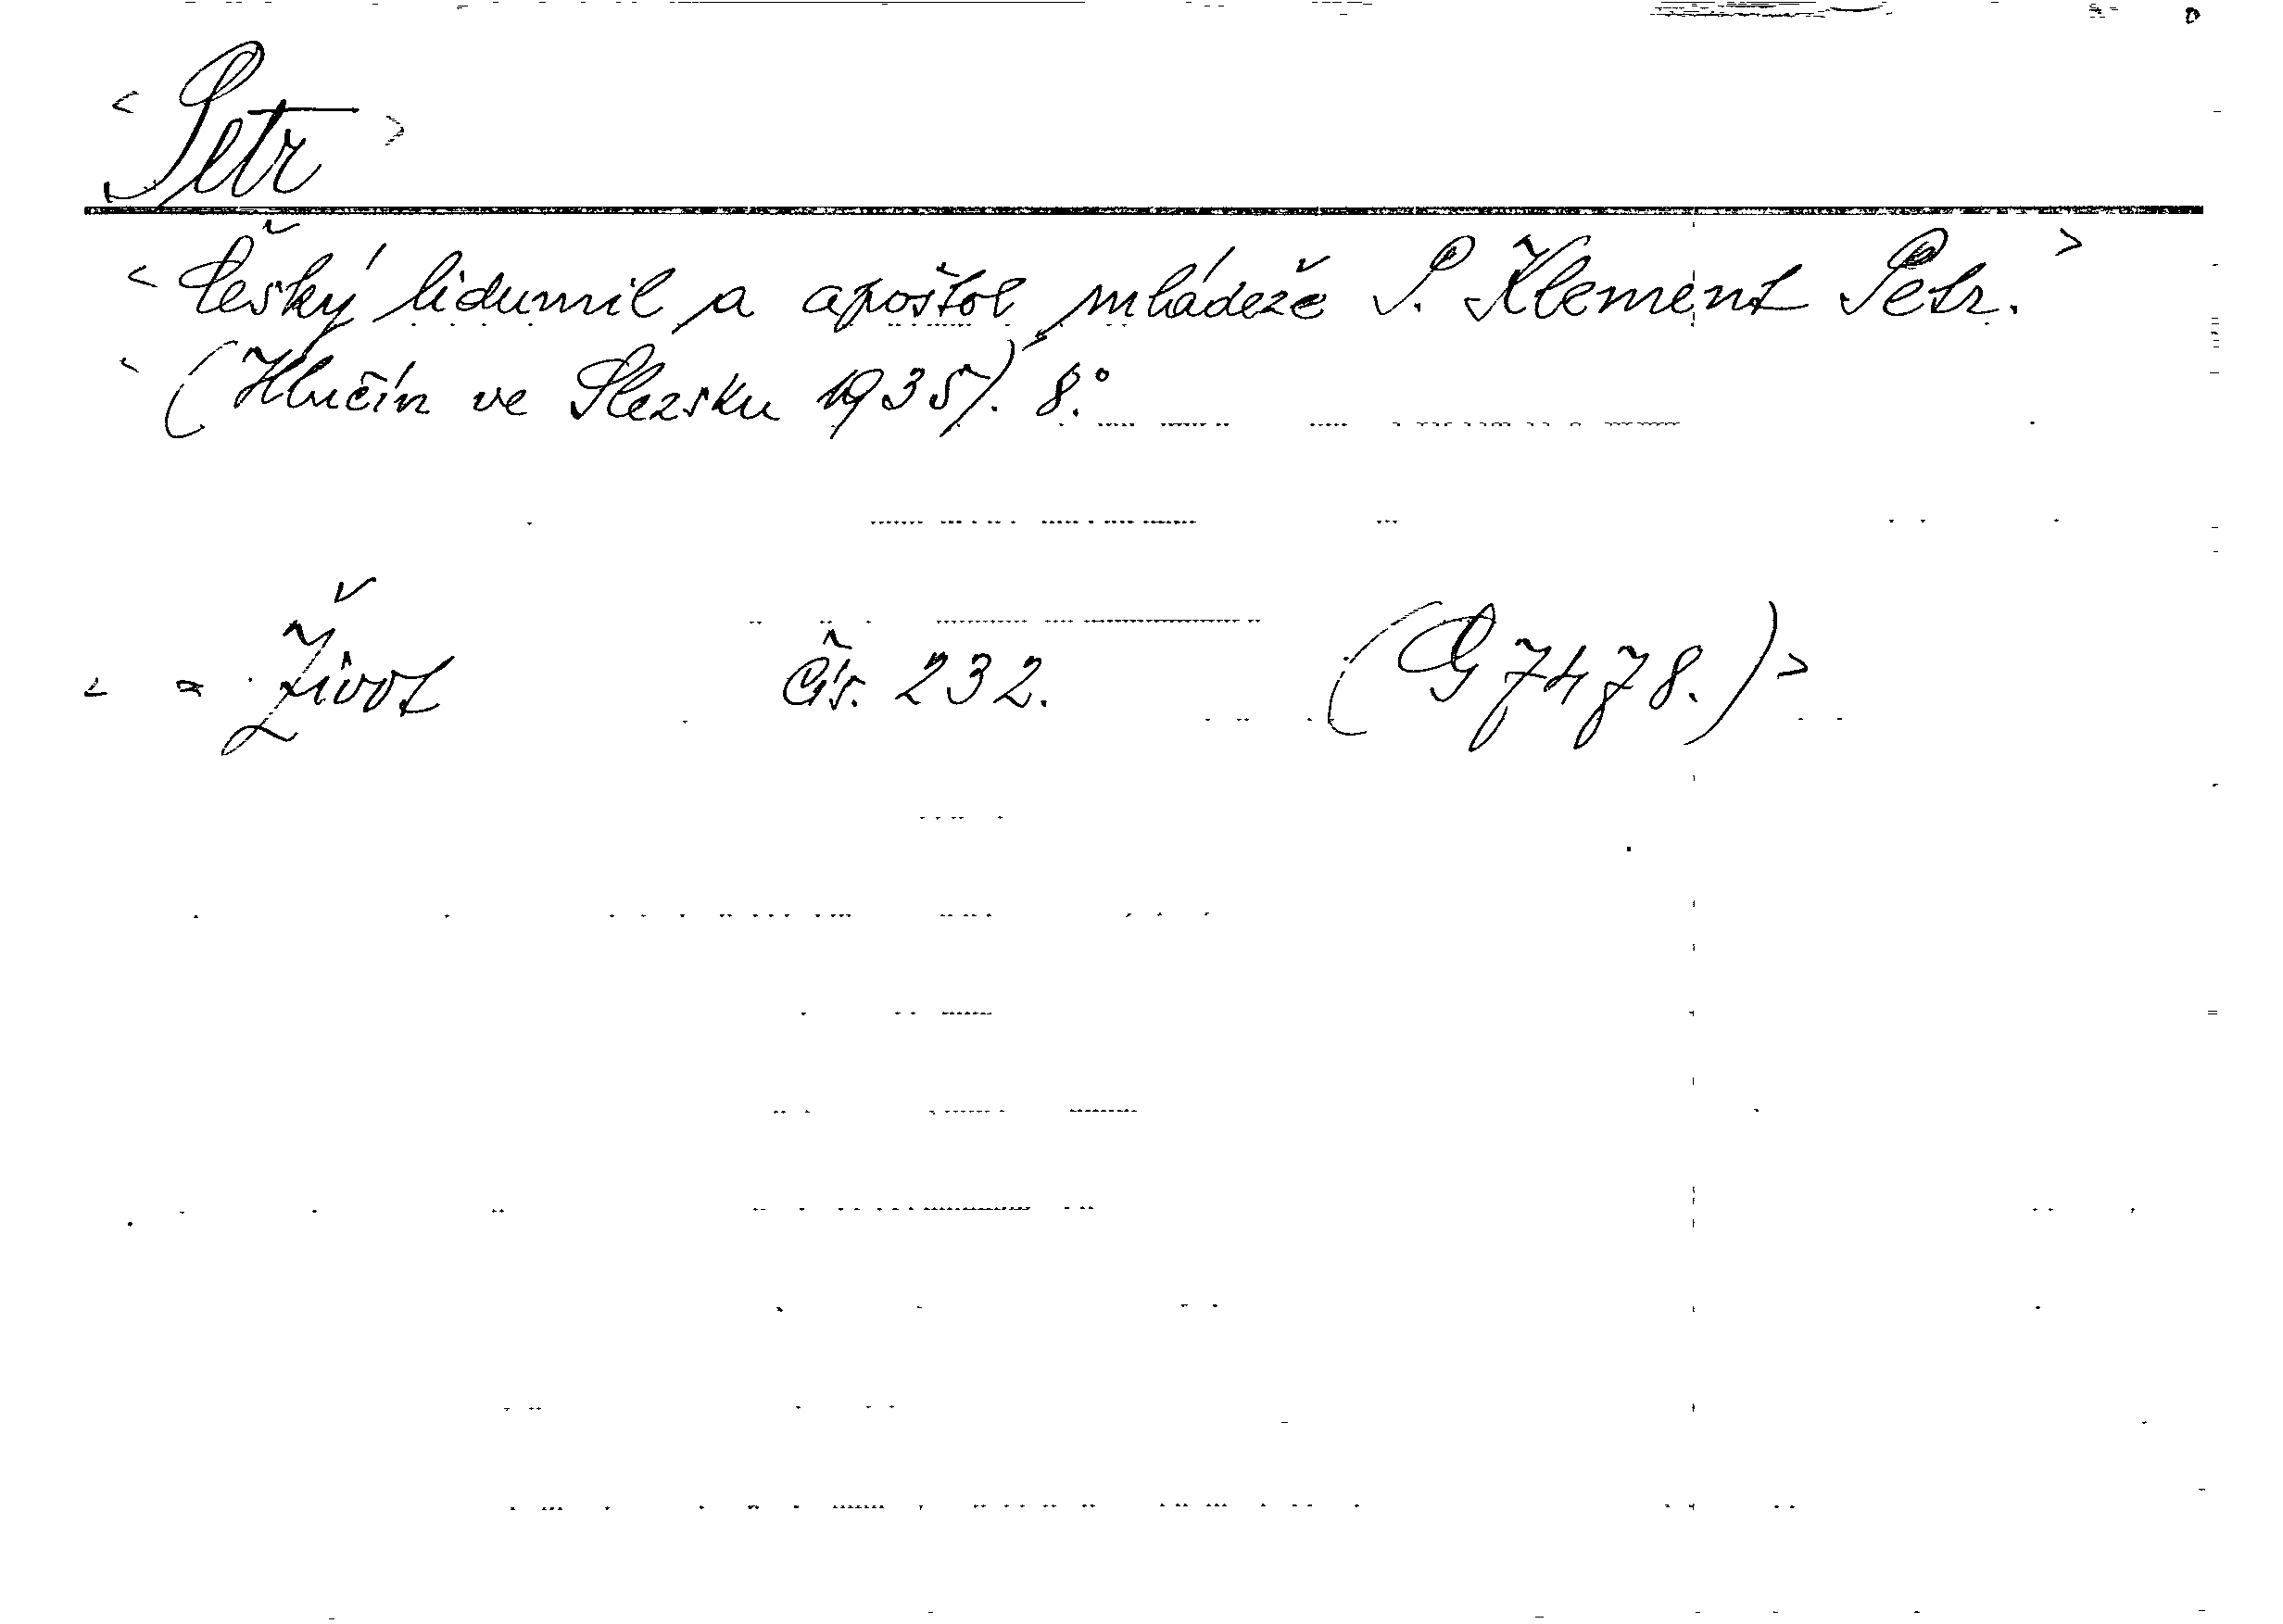 < Petr >
< Český lidumil a apoštol mládeže P. Klement Petr. >
< (Hlučín ve Slezsku 1935). 8°.
< = Život čís. 232. (G 7478.) >